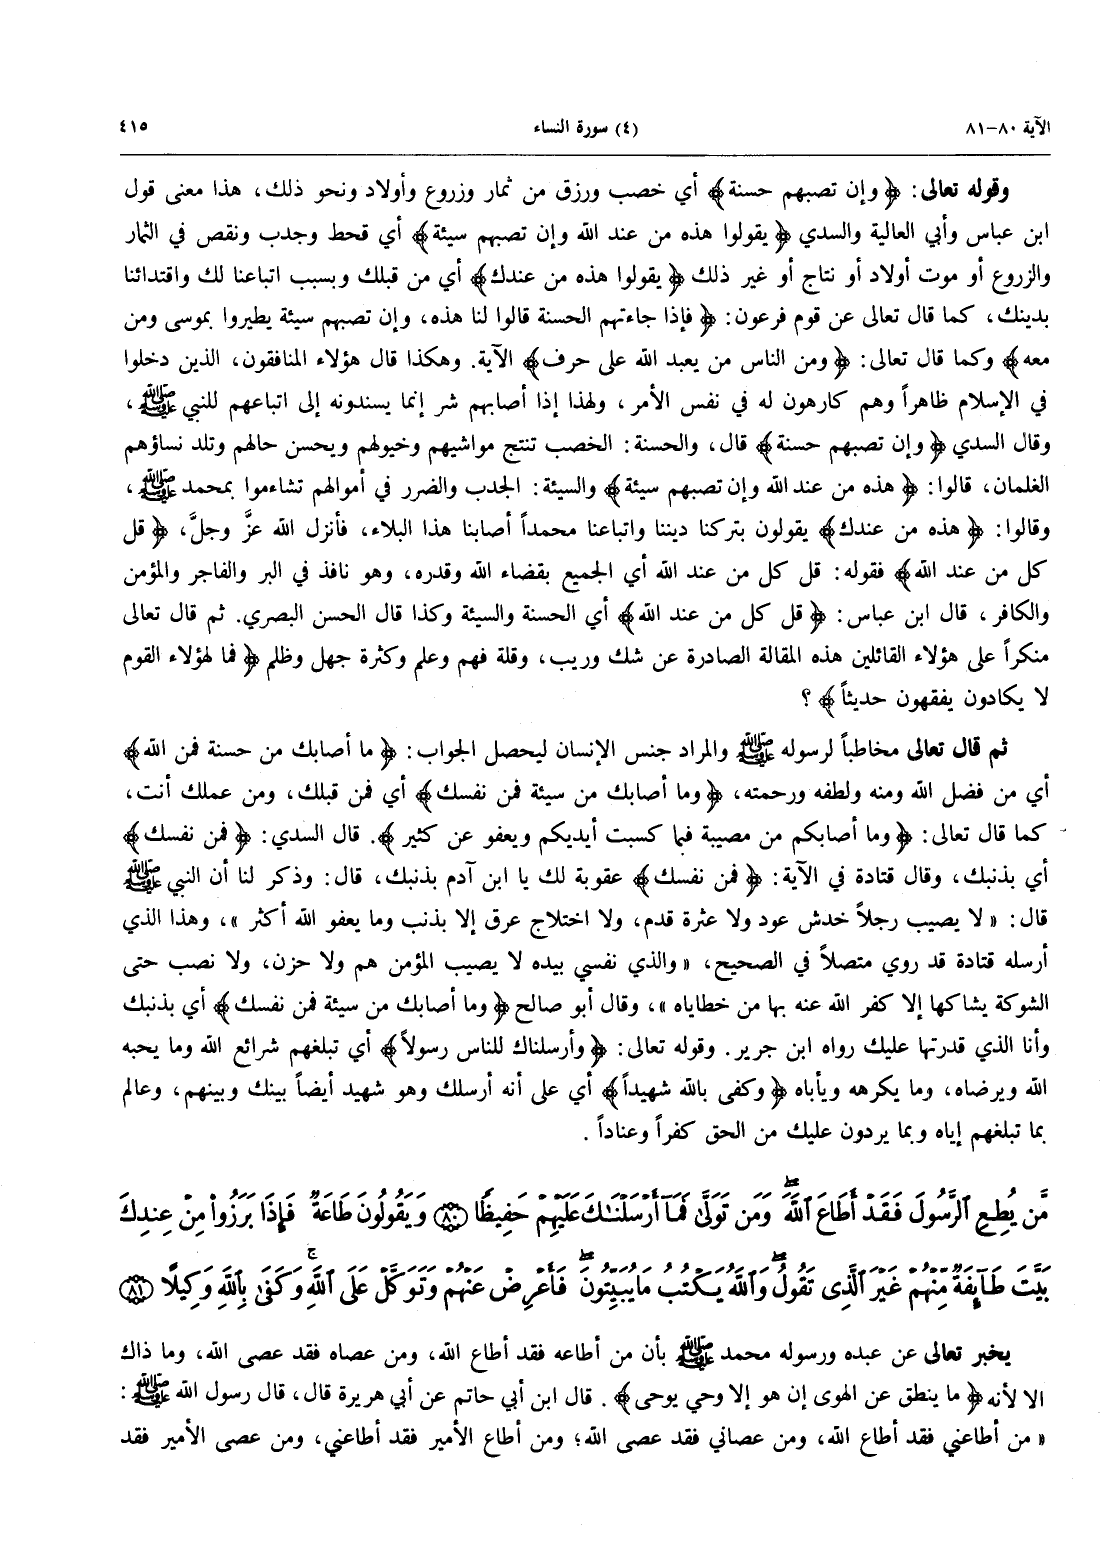 الآية ٨٠-٨١ (٤) سورة النساء ٤١٥
وقوله تعالى: ﴿وإن تصبهم حسنة﴾ أي خصب ورزق من ثمار وزروع وأولاد ونحو ذلك، هذا معنى قول
ابن عباس وأبي العالية والسدي ﴿يقولوا هذه من عند الله وإن تصبهم سيئة﴾ أي قحط وجدب ونقص في الثمار
والزروع أو موت أولاد أو نتاج أو غير ذلك ﴿يقولوا هذه من عندك﴾ أي من قبلك وبسبب اتباعنا لك واقتدائنا
بدينك، كما قال تعالى عن قوم فرعون: ﴿فإذا جاءتهم الحسنة قالوا لنا هذه، وإن تصبهم سيئة يطيروا بموسى ومن
معه﴾ وكما قال تعالى: ﴿ومن الناس من يعبد الله على حرف﴾ الآية. وهكذا قال هؤلاء المنافقون، الذين دخلوا
في الإسلام ظاهراً وهم كارهون له في نفس الأمر، ولهذا إذا أصابهم شر إنما يسندونه إلى اتباعهم للنبي ﷺ،
وقال السدي ﴿وإن تصبهم حسنة﴾ قال، والحسنة: الخصب تنتج مواشيهم وخيولهم ويحسن حالهم وتلد نساؤهم
الغلمان، قالوا: ﴿هذه من عند الله وإن تصبهم سيئة﴾ والسيئة: الجدب والضرر في أموالهم تشاءموا بمحمد ﷺ،
وقالوا: ﴿هذه من عندك﴾ يقولون بتركنا ديننا واتباعنا محمداً أصابنا هذا البلاء، فأنزل الله عزَّ وجلَّ، ﴿قل
كل من عند الله﴾ فقوله: قل كل من عند الله أي الجميع بقضاء الله وقدره، وهو نافذ في البر والفاجر والمؤمن
والكافر، قال ابن عباس: ﴿قل كل من عند الله﴾ أي الحسنة والسيئة وكذا قال الحسن البصري. ثم قال تعالى
منكراً على هؤلاء القائلين هذه المقالة الصادرة عن شك وريب، وقلة فهم وعلم وكثرة جهل وظلم ﴿فما لهؤلاء القوم
لا يكادون يفقهون حديثاً﴾ ؟
ثم قال تعالى مخاطباً لرسوله ﷺ والمراد جنس الإنسان ليحصل الجواب: ﴿ما أصابك من حسنة فمن الله﴾
أي من فضل الله ومنه ولطفه ورحمته، ﴿وما أصابك من سيئة فمن نفسك﴾ أي فمن قبلك، ومن عملك أنت،
كما قال تعالى: ﴿وما أصابكم من مصيبة فبما كسبت أيديكم ويعفو عن كثير﴾. قال السدي: ﴿فمن نفسك﴾
أي بذنبك، وقال قتادة في الآية: ﴿فمن نفسك﴾ عقوبة لك يا ابن آدم بذنبك، قال: وذكر لنا أن النبي ﷺ
قال: «لا يصيب رجلاً خدش عود ولا عثرة قدم، ولا اختلاج عرق إلا بذنب وما يعفو الله أكثر»، وهذا الذي
أرسله قتادة قد روي متصلاً في الصحيح، «والذي نفسي بيده لا يصيب المؤمن هم ولا حزن، ولا نصب حتى
الشوكة يشاكها إلا كفر الله عنه بها من خطاياه»، وقال أبو صالح ﴿وما أصابك من سيئة فمن نفسك﴾ أي بذنبك
وأنا الذي قدرتها عليك رواه ابن جرير. وقوله تعالى: ﴿وأرسلناك للناس رسولاً﴾ أي تبلغهم شرائع الله وما يحبه
الله ويرضاه، وما يكرهه ويأباه ﴿وكفى بالله شهيداً﴾ أي على أنه أرسلك وهو شهيد أيضاً بينك وبينهم، وعالم
بما تبلغهم إياه وبما يردون عليك من الحق كفراً وعناداً.
مَّن يُطِعِ ٱلرَّسُولَ فَقَدْ أَطَاعَ ٱللَّهَ ۖ وَمَن تَوَلَّىٰ فَمَآ أَرْسَلْنَـٰكَ عَلَيْهِمْ حَفِيظًا ﴿٨٠﴾ وَيَقُولُونَ طَاعَةٌ فَإِذَا بَرَزُوا۟ مِنْ عِندِكَ
بَيَّتَ طَآئِفَةٌ مِّنْهُمْ غَيْرَ ٱلَّذِى تَقُولُ ۖ وَٱللَّهُ يَكْتُبُ مَا يُبَيِّتُونَ ۖ فَأَعْرِضْ عَنْهُمْ وَتَوَكَّلْ عَلَى ٱللَّهِ ۚ وَكَفَىٰ بِٱللَّهِ وَكِيلًا ﴿٨١﴾
يخبر تعالى عن عبده ورسوله محمد ﷺ بأن من أطاعه فقد أطاع الله، ومن عصاه فقد عصى الله، وما ذاك
الا لأنه ﴿ما ينطق عن الهوى إن هو إلا وحي يوحى﴾. قال ابن أبي حاتم عن أبي هريرة قال، قال رسول الله ﷺ:
«من أطاعني فقد أطاع الله، ومن عصاني فقد عصى الله؛ ومن أطاع الأمير فقد أطاعني، ومن عصى الأمير فقد